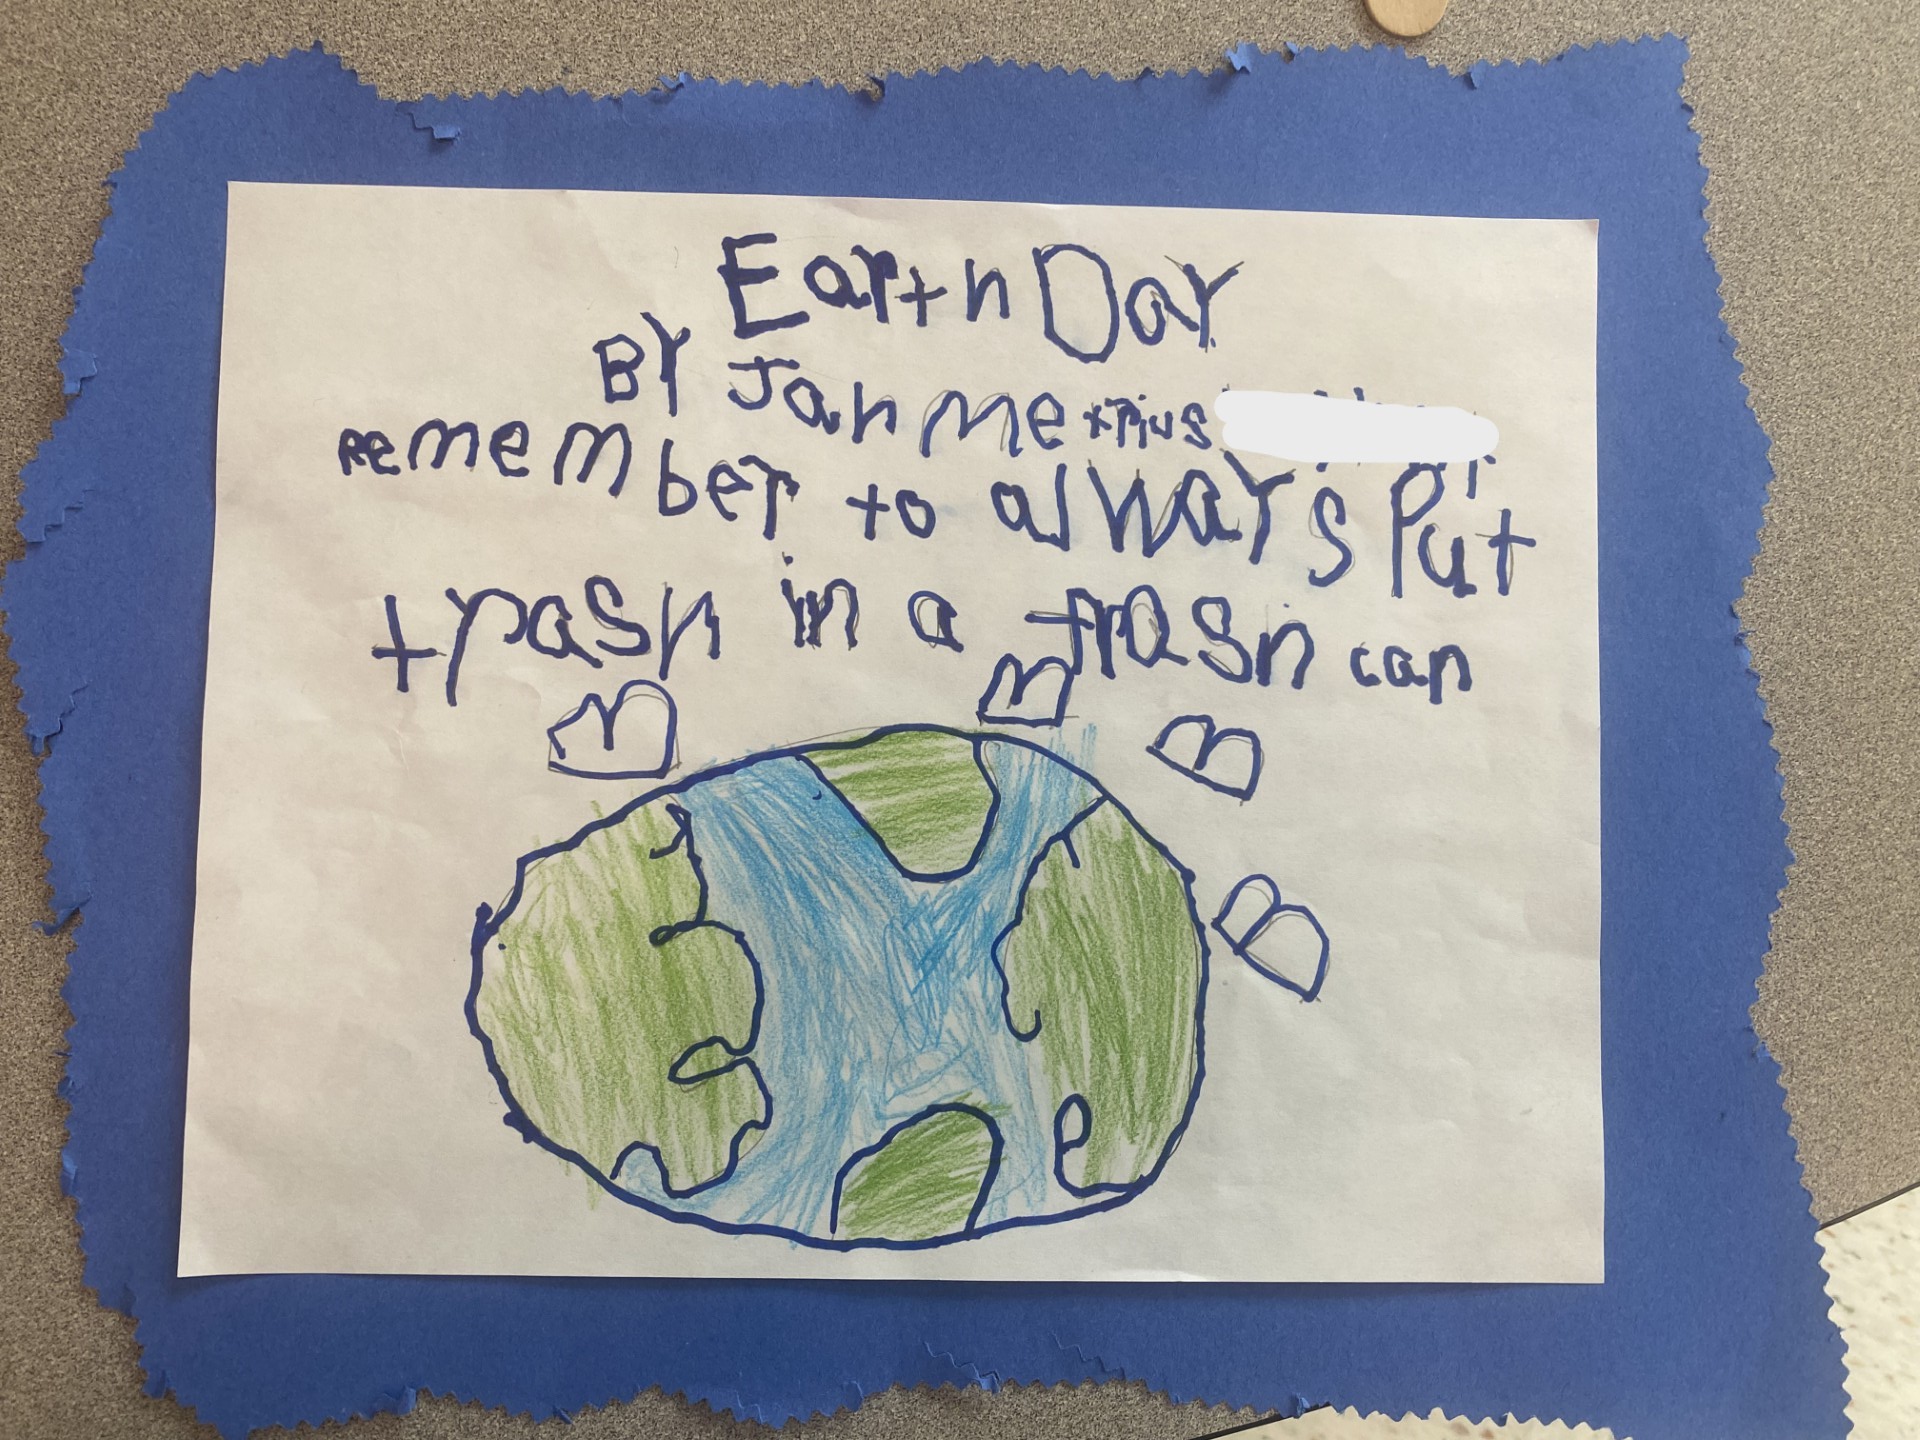 Earth Day
BY Janme
remember to always Put
trash in a trash can
B B B B